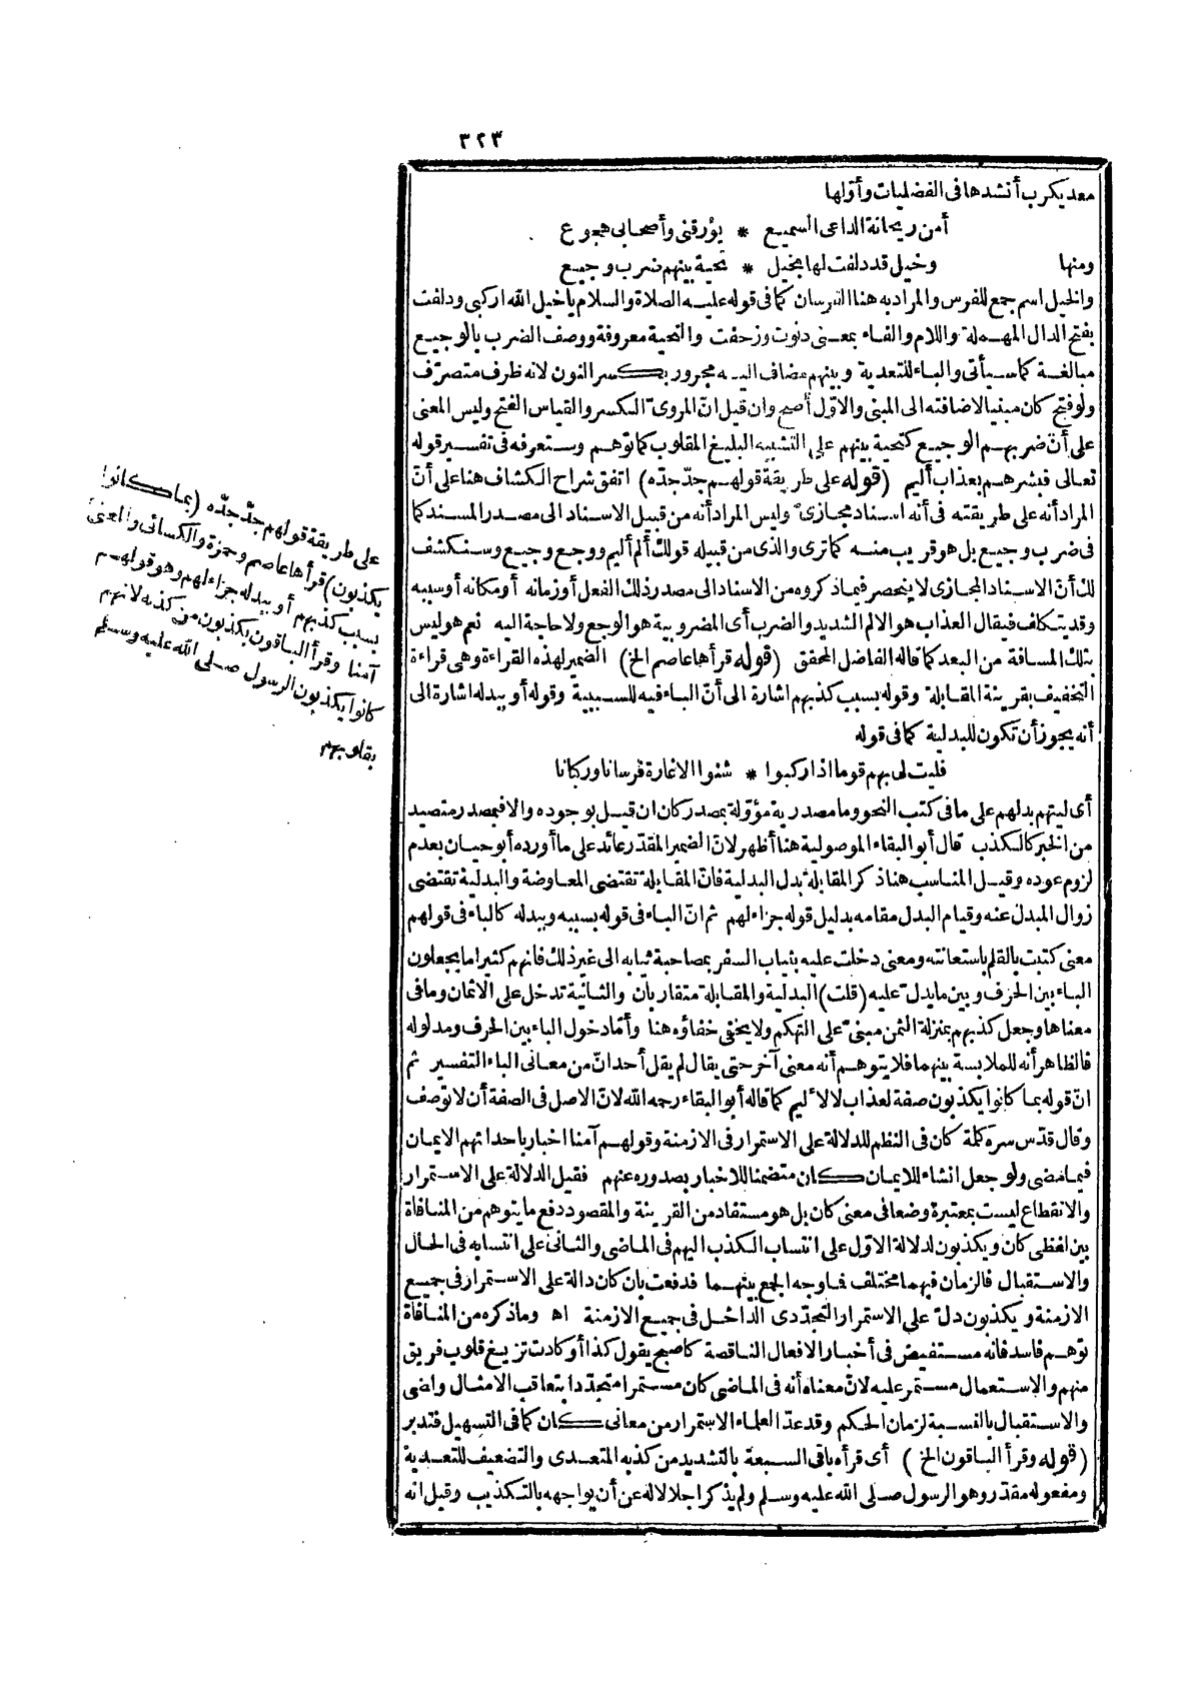 ٣٢٣
معديكرب أنشدها فى الفضليات وأوّلها
أمن ريحانة الداعى السميع * يؤرقنى وأصحابى هجوع
ومنها وخيل قد دلفت لها بخيل * تحية بينهم ضرب وجيع
والخيل اسم جمع للفرس والمراد به هنا الفرسان كما فى قوله عليه الصلاة والسلام يا خيل الله اركبى ودلفت
بفتح الدال المهملة واللام والفاء بمعنى دنوت وزحفت والتحية معروفة ووصف الضرب بالوجيع
مبالغة كما سيأتى والباء للتعدية وبينهم مضاف اليه مجرور بكسر النون لانه ظرف متصرّف
ولو فتح كان مبنيا لاضافته الى المبنى والاوّل أصح وان قيل انّ المروىّ الكسر والقياس الفتح وليس المعنى
على أنّ ضربهم الوجيع كتحية بينهم على التشبيه البليغ المقلوب كما توهم وستعرفه فى تفسير قوله
تعالى فبشرهم بعذاب أليم (قوله على طريقة قولهم جدّ جدّه) اتفق شراح الكشاف هنا على أنّ
المراد أنه على طريقته فى أنه اسناد مجازىّ وليس المراد أنه من قبيل الاسناد الى مصدر المسند كما
فى ضرب وجيع بل هو قريب منه كما ترى والذى من قبيله قولك ألم أليم ووجع وجيع وسنكشف
لك أنّ الاسناد المجازى لا ينحصر فيما ذكروه من الاسناد الى مصدر ذلك الفعل أو زمانه أو مكانه أو سببه
وقد يتكلف فيقال العذاب هو الالم الشديد والضرب أى المضروبية هو الوجع ولا حاجة اليه نعم هو ليس
بتلك المسافة من البعد كما قاله الفاضل المحقق (قوله قرأها عاصم الخ) الضمير لهذه القراءة وهى قراءة
التخفيف بقرينة المقابلة وقوله بسبب كذبهم اشارة الى أنّ الباء فيه للسببية وقوله أو ببدله اشارة الى
أنه يجوز أن تكون للبدلية كما فى قوله
فليت لى بهم قوما اذا ركبوا * شنوا الاغارة فرسانا وركبانا
أى ليتهم بدلهم على ما فى كتب النحو وما مصدرية مؤوّلة بمصدر كان ان قيل بوجوده والا فبمصدر متصيد
من الخبر كالكذب قال أبو البقاء الموصولية هنا أظهر لانّ الضمير المقدّر عائد على ما أورده أبو حيان بعدم
لزوم عوده وقيل المناسب هنا ذكر المقابلة بدل البدلية فانّ المقابلة تقتضى المعاوضة والبدلية تقتضى
زوال المبدل عنه وقيام البدل مقامه بدليل قوله جزاء لهم ثم انّ الباء فى قوله بسببه وببدله كالباء فى قولهم
معنى كتبت بالقلم باستعانته ومعنى دخلت عليه بثياب السفر بمصاحبة ثيابه الى غير ذلك فانهم كثيرا ما يجعلون
الباء بين الحرف وبين ما يدلّ عليه (قلت) البدلية والمقابلة متقاربان والثانية تدخل على الاثمان وما فى
معناها وجعل كذبهم بمنزلة الثمن مبنىّ على التهكم ولا يخفى خفاؤه هنا وأمّا دخول الباء بين الحرف ومدلوله
فالظاهر أنه للملابسة بينهما فلا يتوهم أنه معنى آخر حتى يقال لم يقل أحد انّ من معانى الباء التفسير ثم
انّ قوله بما كانوا يكذبون صفة لعذاب لا لأليم كما قاله أبو البقاء رحمه الله لانّ الاصل فى الصفة أن لا توصف
وقال قدّس سرّه كلمة كان فى النظم للدلالة على الاستمرار فى الازمنة وقولهم آمنا اخبار باحداثهم الايمان
فيما مضى ولو جعل انشاء للايمان كان متضمنا للاخبار بصدوره عنهم فقيل الدلالة على الاستمرار
والانقطاع ليست بمعتبرة وضعا فى معنى كان بل هو مستفاد من القرينة والمقصود دفع ما يتوهم من المنافاة
بين لفظى كان ويكذبون لدلالة الاوّل على انتساب الكذب اليهم فى الماضى والثانى على انتسابه فى الحال
والاستقبال فالزمان فيهما مختلف فما وجه الجمع بينهما فدفعت بان كان دالة على الاستمرار فى جميع
الازمنة ويكذبون دلّ على الاستمرار التجدّدى الداخل فى جميع الازمنة اه وما ذكره من المنافاة
توهم فاسد فانه مستفيض فى أخبار الافعال الناقصة كاصبح يقول كذا أو كادت تزيغ قلوب فريق
منهم والاستعمال مستمر عليه لانّ معناه أنه فى الماضى كان مستمرا متجدّدا بتعاقب الامثال واضى
والاستقبال بالنسبة لزمان الحكم وقد عدّ العلماء الاستمرار من معانى كان كما فى التسهيل فتدبر
(قوله وقرأ الباقون الخ) أى قرأه باقى السبعة بالتشديد من كذبه المتعدى والتضعيف للتعدية
ومفعوله مقدّر وهو الرسول صلى الله عليه وسلم ولم يذكر اجلالا له عن أن يواجهه بالتكذيب وقيل انه
على طريقة قولهم جدّ جدّه (بما كانوا
يكذبون) قرأها عاصم وحمزة والكسائى والمعنى
بسبب كذبهم أو ببدله جزاء لهم وهو قولهم
آمنا وقرأ الباقون يكذبون من كذبه لانهم
كانوا يكذبون الرسول صلى الله عليه وسلم
بقلوبهم